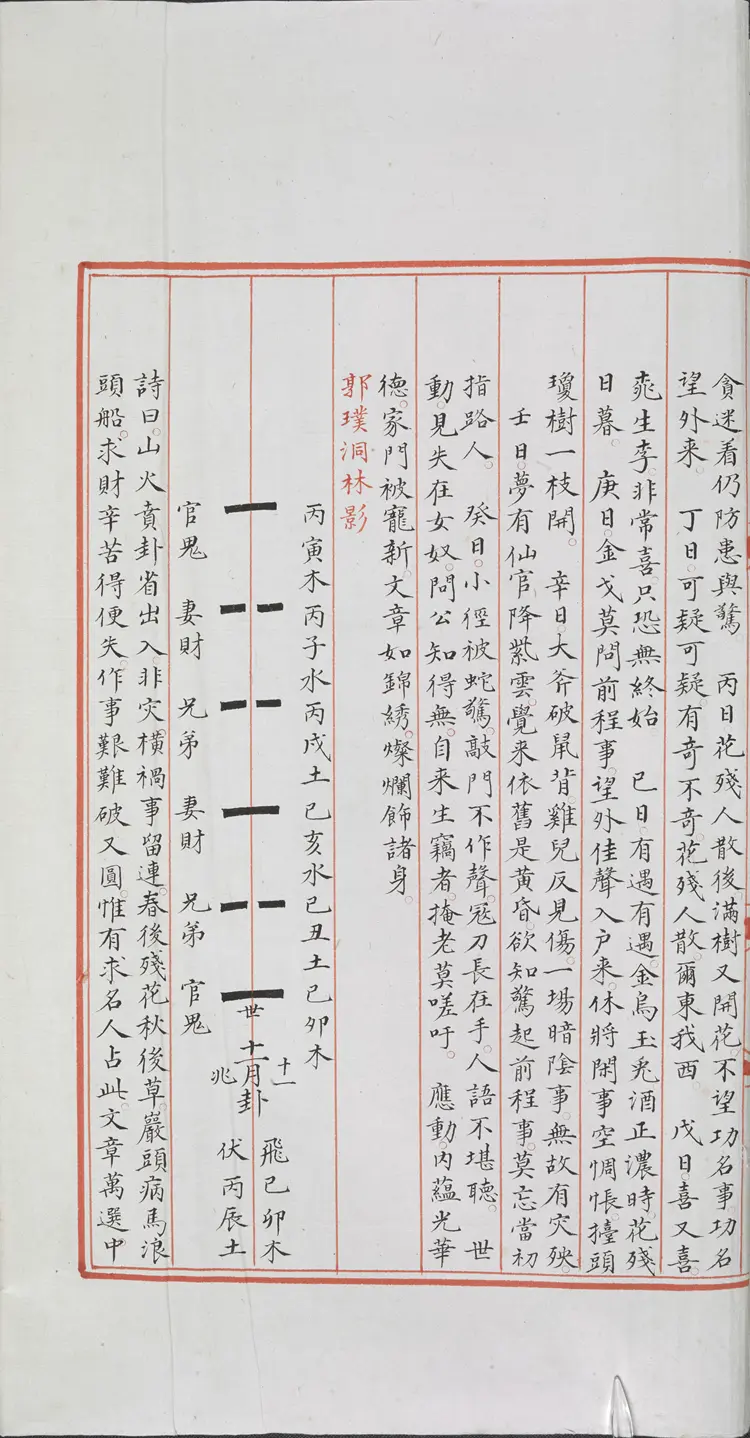 貪迷着仍防患與驚　丙日花殘人散後。滿樹又開花。不望功名事功名
望外来。　丁日。可疑可疑。有奇不奇。花殘人散。爾東我西　戊日。喜又喜
桃生李。非常喜。只恐無終始　己日。有遇有遇。金烏玉兎酒正濃時。花殘
日暮。　庚日。金戈莫問前程事。望外佳聲入户来。休將閑事空惆悵。擡頭
瓊樹一枝開。　辛日。大斧破鼠背雞兒反見傷。一場暗陰事。無故有灾殃。
壬日。夢有仙官降紫雲。覺来依舊是黄昏。欲知驚起前程事。莫忘當初
指路人。　癸日。小徑被蛇驚。敲門不作聲。冦刀長在手。人語不堪聽。　世
動。見失在女奴。問公知得無。自来生竊者。掩老莫嗟吁。　應動。内蘊光華
德。家門被寵新。文章如錦綉。燦爛飾諸身。
郭璞洞林影
丙寅木丙子水丙戌土己亥水己丑土己卯木
世
十一
十一月卦
兆
飛己卯木
伏丙辰土
官鬼　妻財　兄弟　妻財　兄弟　官鬼
詩曰。山火賁卦省出入。非灾横禍事留連。春後殘花秋後草。巖頭病馬浪
頭船。求財辛苦得便失。作事艱難破又圓。惟有求名人占此。文章萬選中